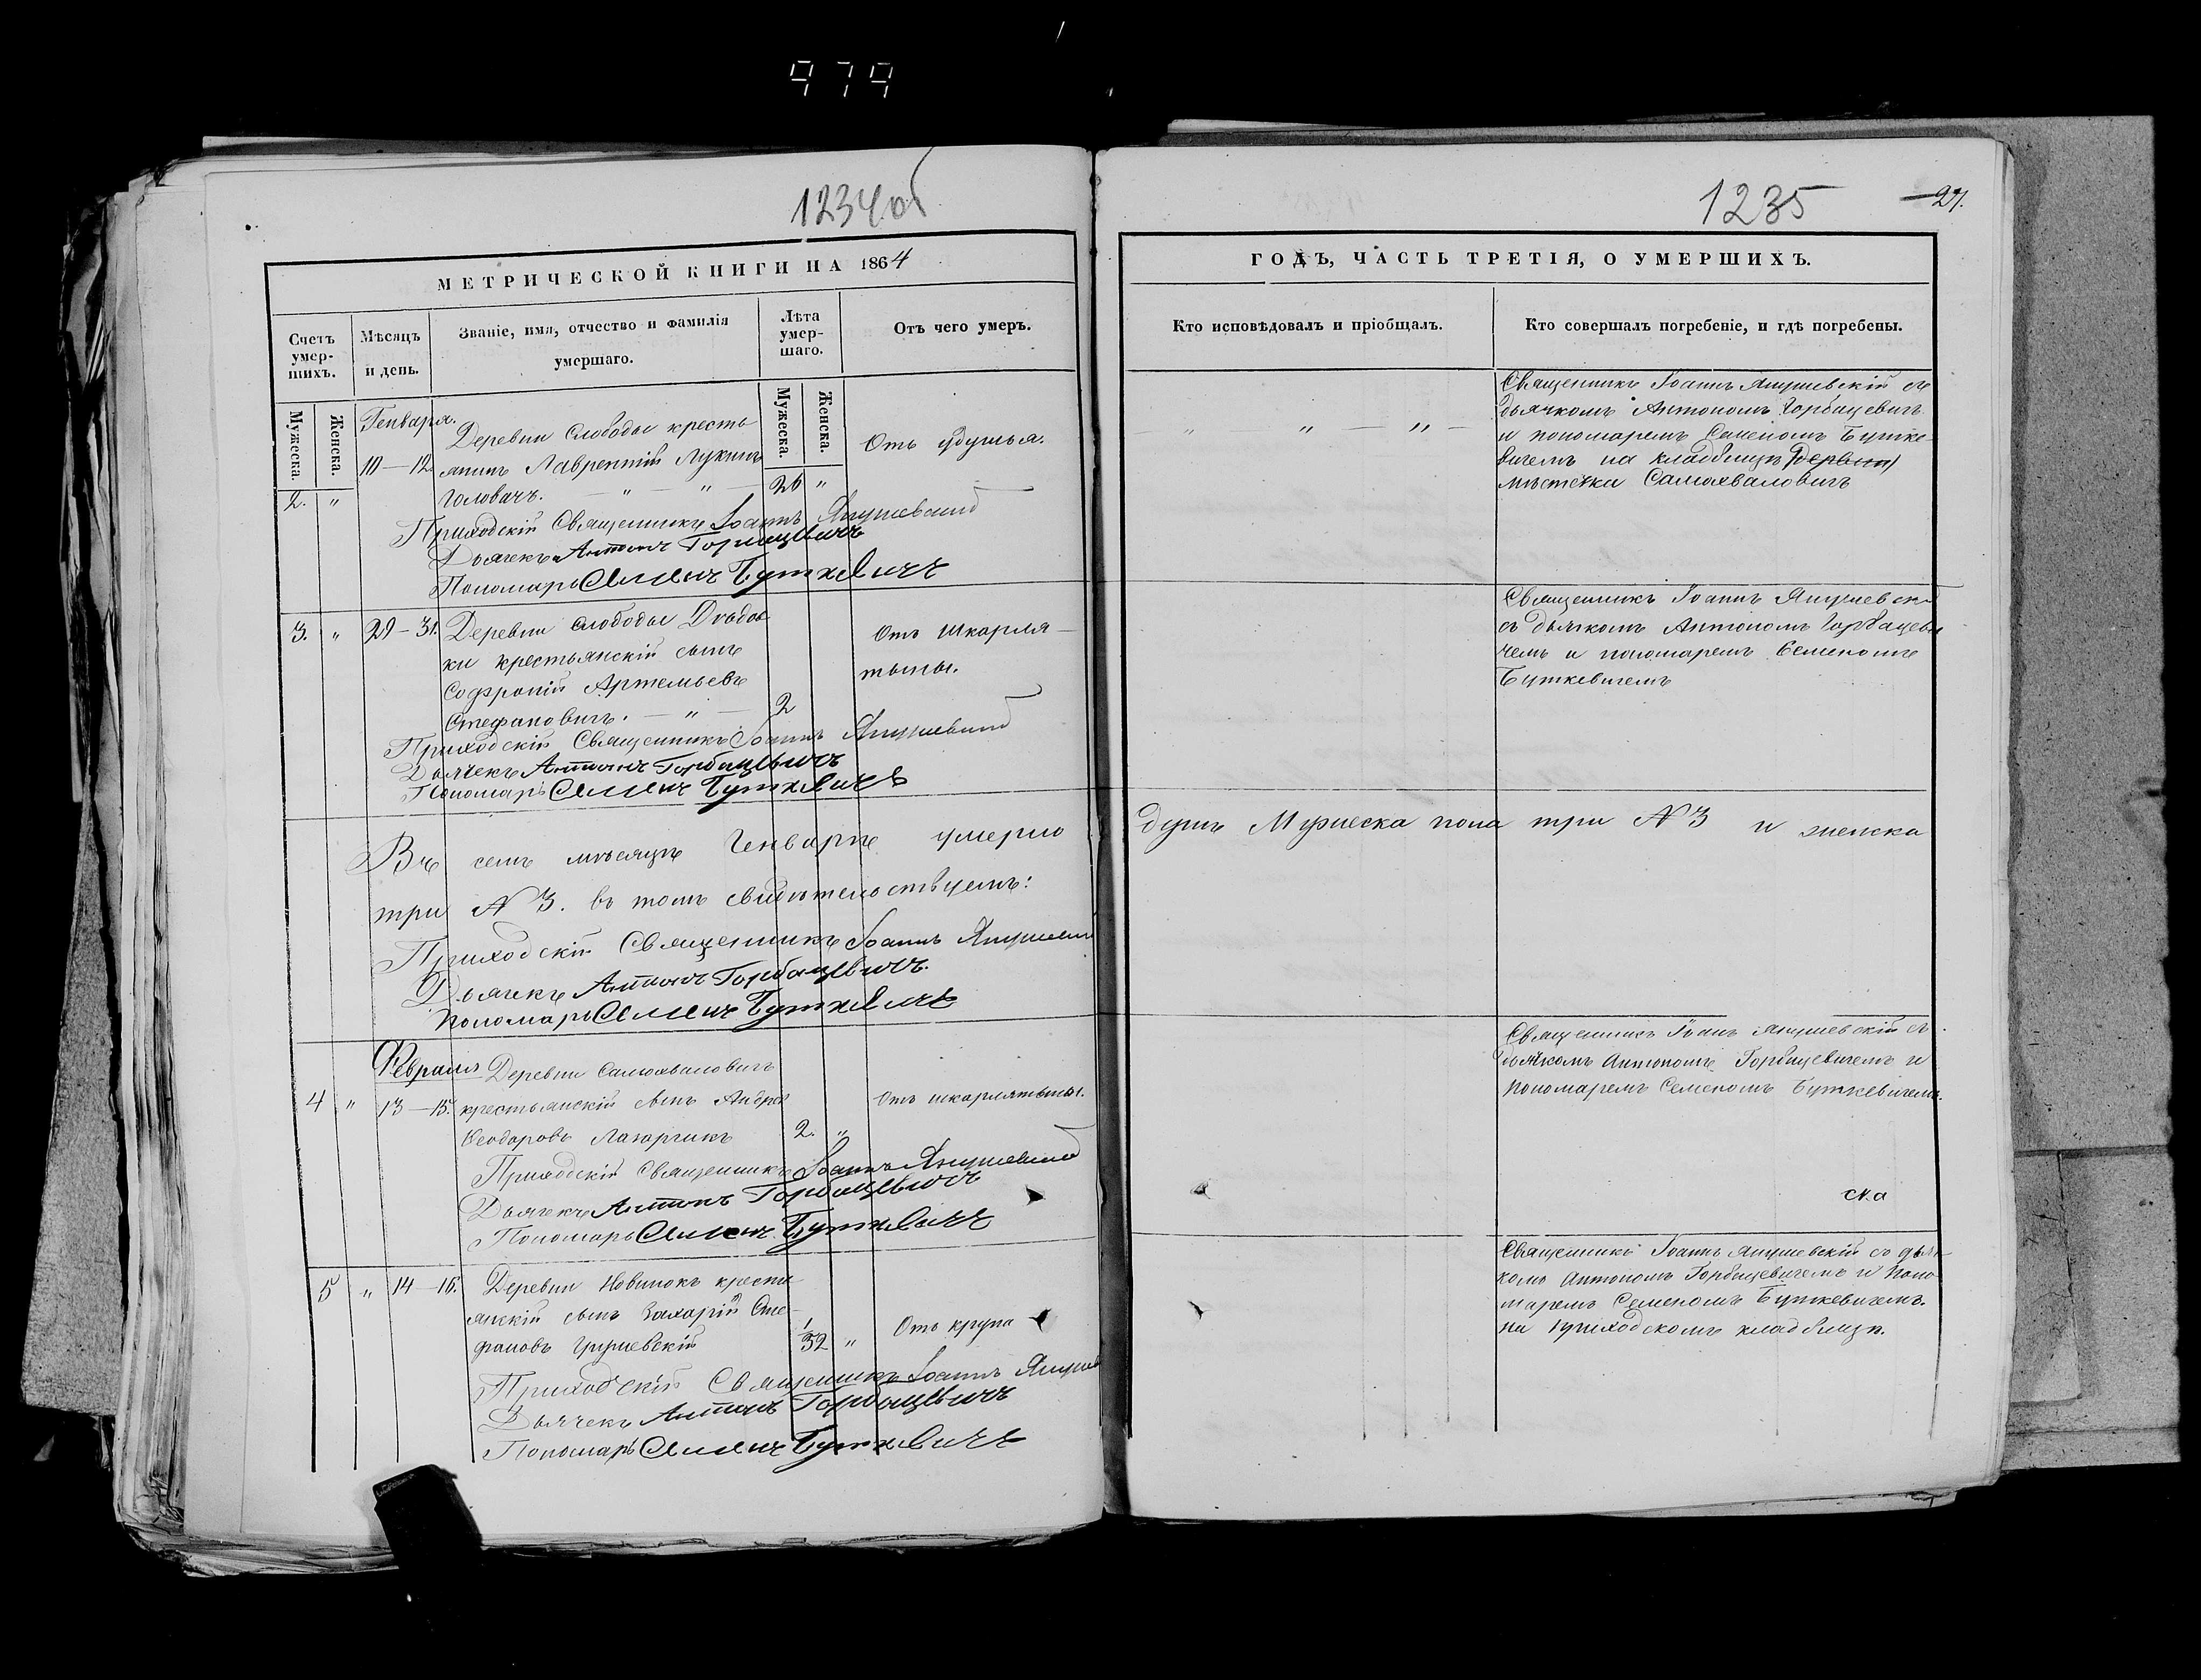 979
1234об
МЕТРИЧЕСКОЙ КНИГИ НА 1864
Счетъ умер-шихъ.
Мѣсяцъ и день.
Званіе, имя, отчество и фамилія умершаго.
Лѣта умер-шаго.
Отъ чего умеръ.
Мужеска.
Женска.
Мужеска.
Женска.
Генваря.
Деревни Слободы кресть
10 — 12.
янинъ Лаврентій Лукинъ
Отъ удушья.
2. "
Головачъ. — " — " —
26 "
Приходскій Священникъ Іоаннъ Янушевскій
Дьячекъ Антонъ Горбацевичъ
Пономарь Семенъ Буткевичъ
3. " 29 — 31. Деревни Слободы
Отъ шкарля-
ки крестьянскій сынъ
тыны.
Софроній Артемьевъ
Стефановичъ. — " —
2
Приходскій Священникъ Іоаннъ Янушевскій
Дьячекъ Антонъ Горбацевичъ
Пономарь Семенъ Буткевичъ
Въ семъ мѣсяцѣ Генварѣ умерло
три № 3. въ томъ свидѣтельствуемъ:
Приходскій Священникъ Іоаннъ
Дьячекъ Антонъ Горбацевичъ.
Пономарь Семенъ Буткевичъ
Февраля
Деревни Самохваловичъ
4 " 13 — 15. крестьянскій сынъ Андрей
Отъ шкарлятыны.
Ѳеодоровъ Лазарчикъ
2. "
Приходскій Священникъ Іоаннъ Янушевскій
Дьячекъ Антонъ Горбацевичъ
Пономарь Семенъ Буткевичъ
5 " 14 — 16. Деревни Новинокъ кресть
янскій сынъ Захарій Сте-
Отъ крупа
фановъ Грушевскій
1/32 "
Приходскій Священникъ Іоаннъ
Дьячекъ Антонъ Горбацевичъ
Пономарь Семенъ Буткевичъ
1235
27.
ГОДЪ, ЧАСТЬ ТРЕТІЯ, О УМЕРШИХЪ.
Кто исповѣдовалъ и пріобщалъ.
Кто совершалъ погребеніе, и гдѣ погребены.
" " — " —
Священникъ Іоаннъ Янушевскій съ
дьячкомъ Антономъ Горбацевичъ
и пономаремъ Семеномъ Бутке-
вичемъ на кладбищѣ (деревни)
мѣстечка Самохваловичъ
Священникъ Іоаннъ Янушевскі
съ дьячкомъ Антономъ Горбацеви
чемъ и пономаремъ Семеномъ
Буткевичемъ
душъ Мужеска пола три № 3 и женска
Священникъ Іоанъ Янушевскій съ
дьячкомъ Антономъ Горбацевичемъ и
пономаремъ Семеномъ Буткевичемъ.
ска
Священникъ Іоаннъ Янушевскій со дья-
комъ Антономъ Горбацевичемъ и Поно-
маремъ Семеномъ Буткевичемъ.
на приходскомъ кладбищѣ.